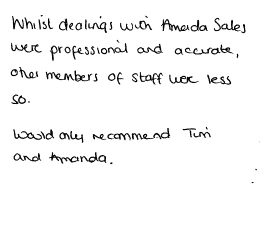 Whilst dealings with Amanda Sales
were professional and accurate,
other members of staff were less
so.
Would only recommend Tim
and Amanda.